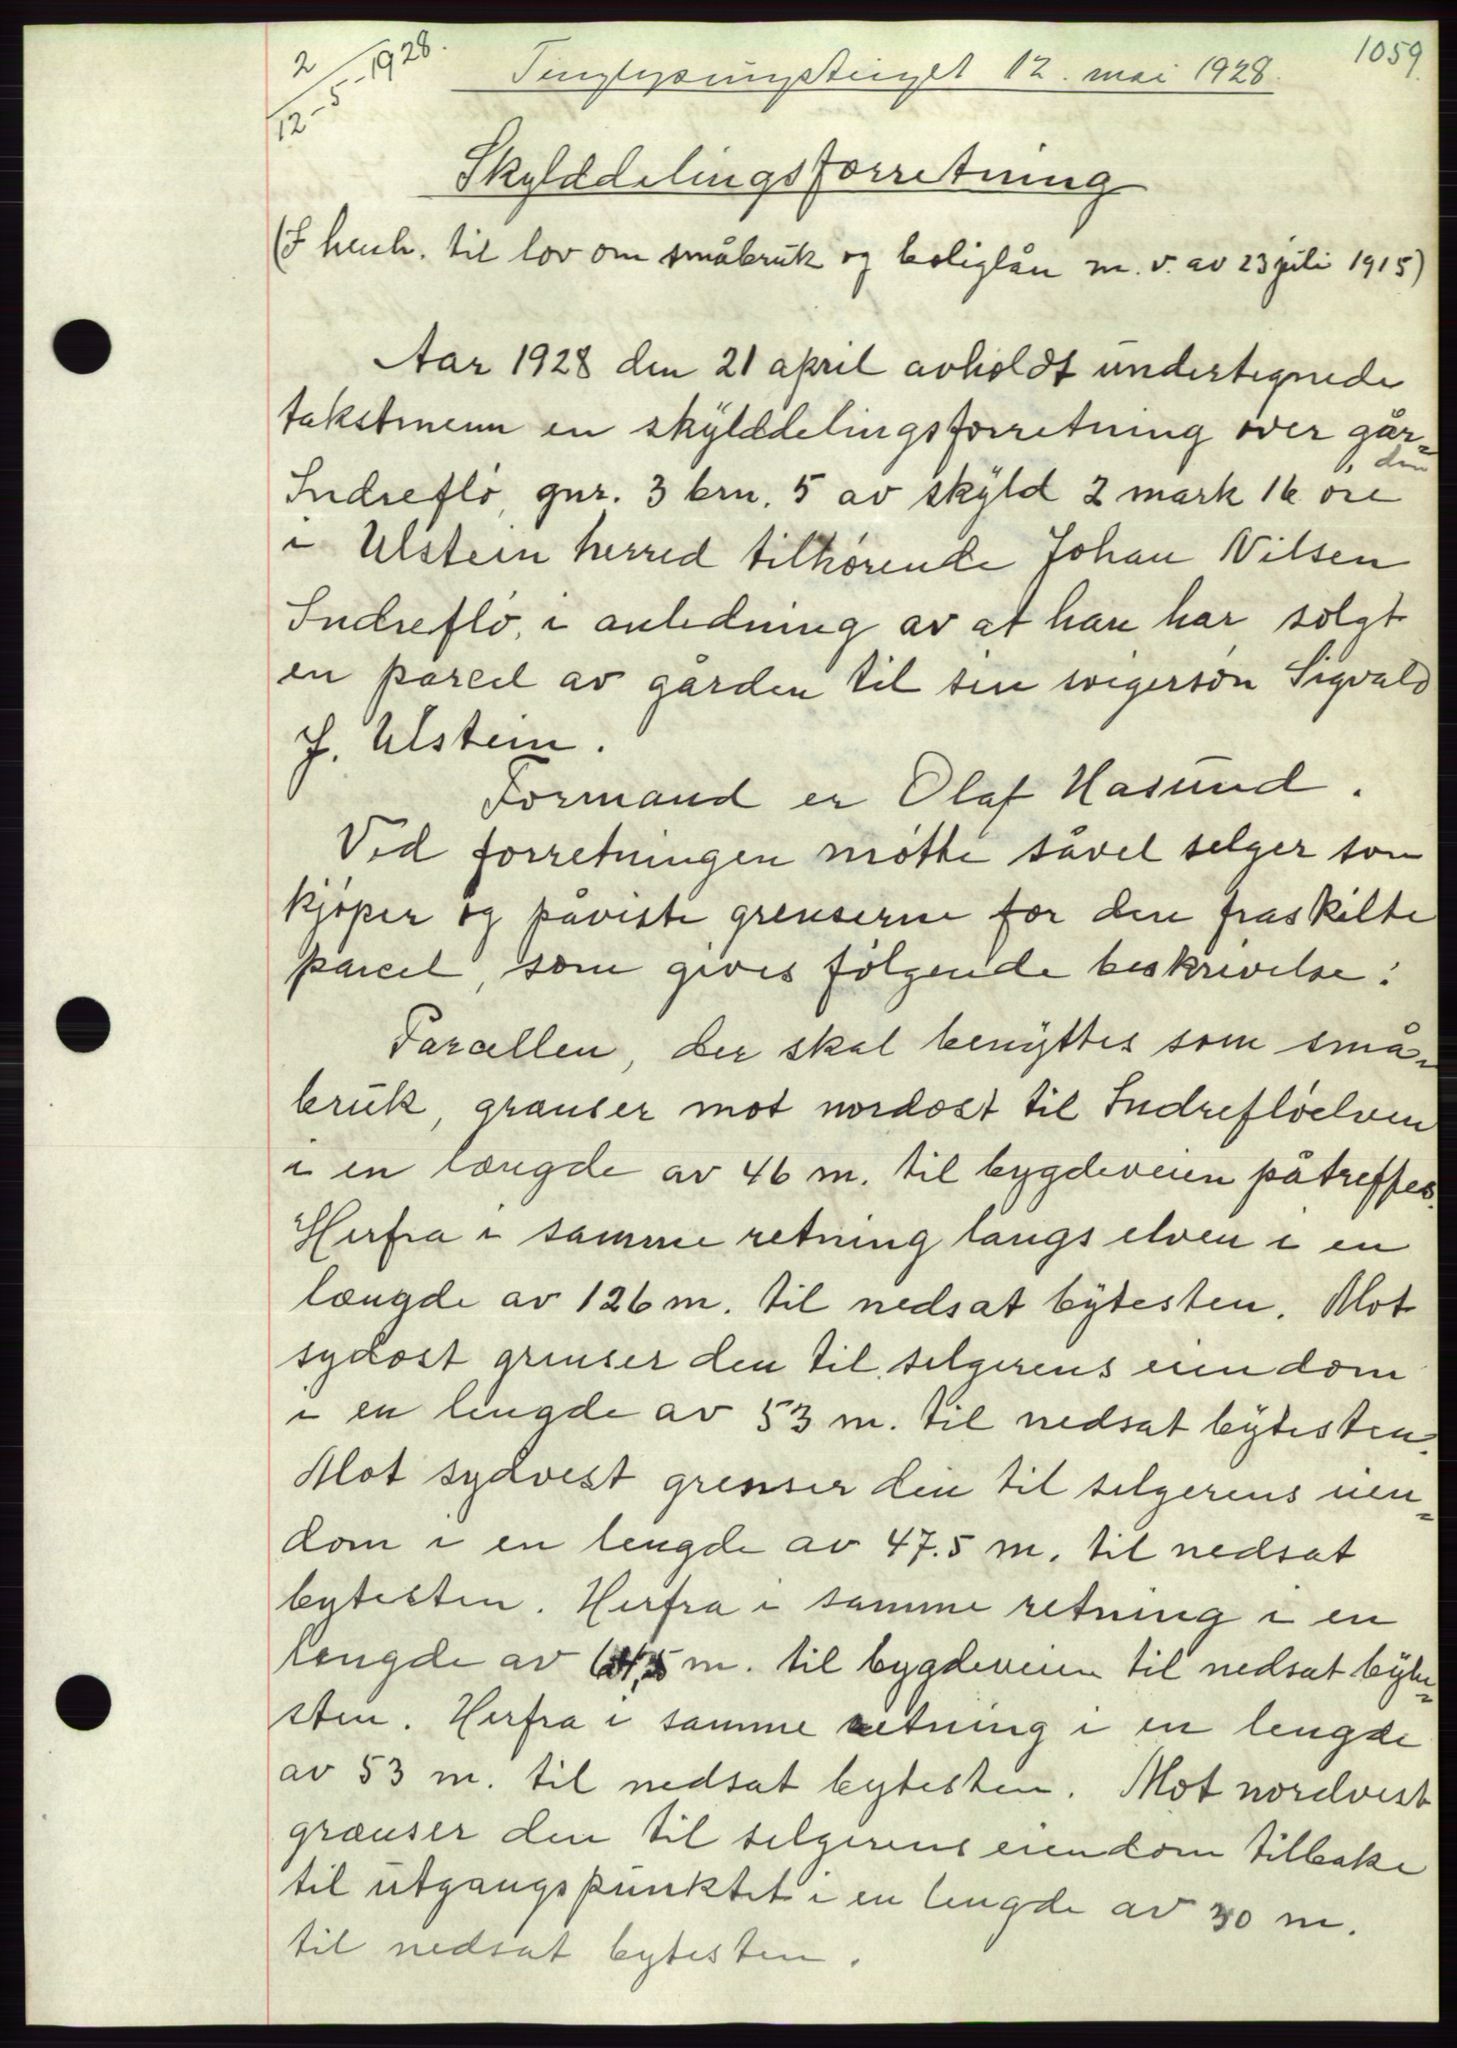 2
12-5-1928.
Tinglysningstinget 12. mai 1928.
1059.
Skylddelingsforretning
(I henh. til lov om småbruk og boliglån m.v. av 23 juli 1915)
Aar 1928 den 21 april avholdt undertegnede
takstmenn en skylddelingsforretning over går=
den
Indreflø, gnr. 3 brn. 5 av skyld 2 mark 16 øre
i Ulstein herred tilhørende Johan Nilsen
Indreflø, i anledning av at han har solgt
en parcel av gården til sin svigersøn Sigvald
J. Ulstein.
Formand er Olaf Hasund.
Ved forretningen møtte såvel selger som
kjøper og påviste grenserne for den fraskilte
parcel, som gives følgende beskrivelse:
Parcellen, der skal benyttes som små=
bruk, grænser mot nordost til Indrefløelven
i en længde av 46 m. til bygdeveien påtreffes.
Herfra i samme retning langs elven i en
længde av 126 m. til nedsat bytesten. Mot
sydost grenser den til selgerens eiendom
i en lengde av 53 m. til nedsat bytesten.
Mot sydvest grenser den til selgerens eien=
dom i en lengde av 47.5 m. til nedsat
bytesten. Herfra i samme retning i en
længde av m. til bygdeveien til nedsat byte=
sten. Herfra i samme retning i en lengde
av 53 m. til nedsat bytesten. Mot nordvest
grænser den til selgerens eiendom tilbake
til utgangspunktet i en lengde av 30 m.
til nedsat bytesten.